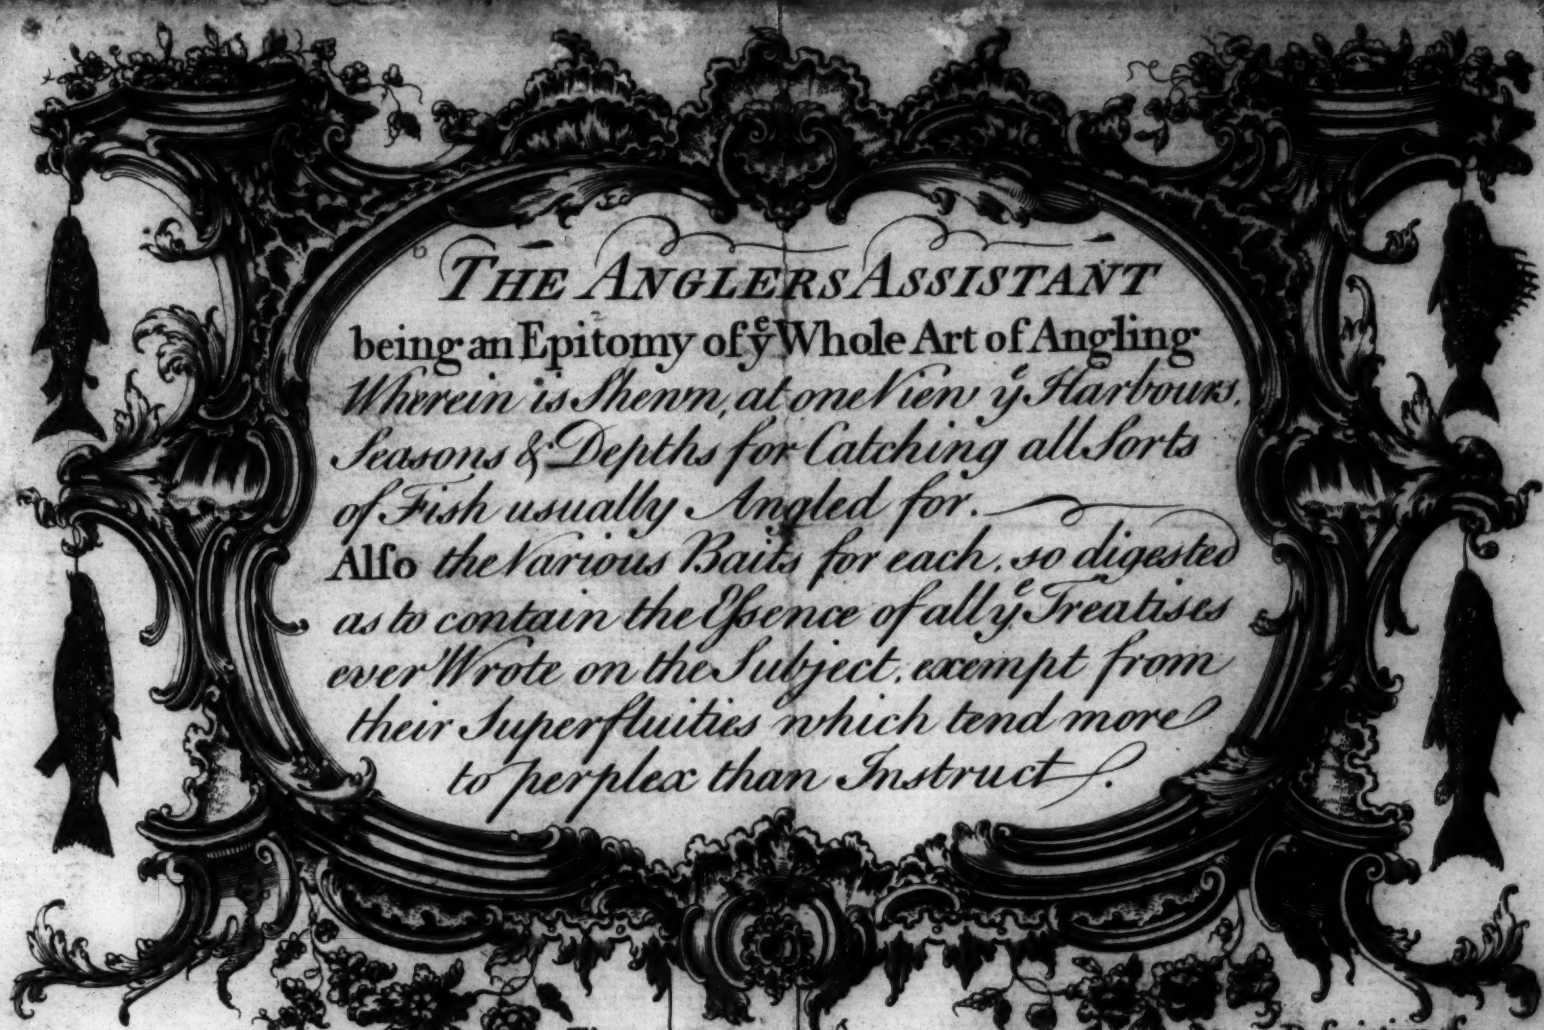 THE ANGLERS ASSISTANT
being an Epitomy of yͤ Whole Art of Angling
Wherein is Shewn, at one View yͤ Harbours,
Seasons & Depths for Catching all Sorts
of Fish usually Angled for.
Alſo the Various Baits for each, so digested
as to contain the Eſsence of all yͤ Treatises
ever Wrote on the Subject, exempt from
their Superfluities which tend more
to perplex than Instruct.